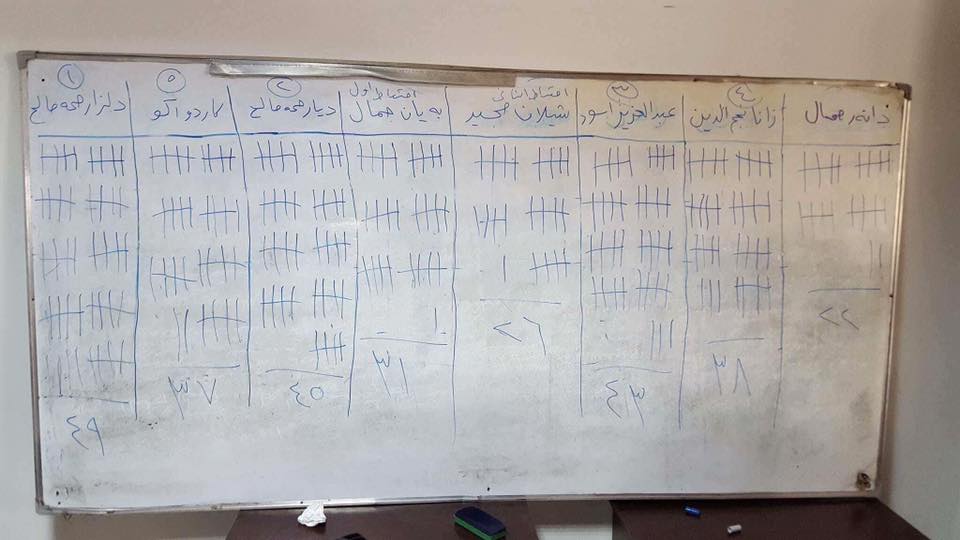 جمال
٢٢
٤
زانا نجم الدين
٣٨
٣
عبدالعزيز
٤٣
احتياط
شيلان مجيد
٢٦
احتياط اول
به يان جمال
٣١
٢
ديار حمه صالح
٤٥
٥
كاردو اكو
٣٧
١
دلزار حمه صالح
٤٩